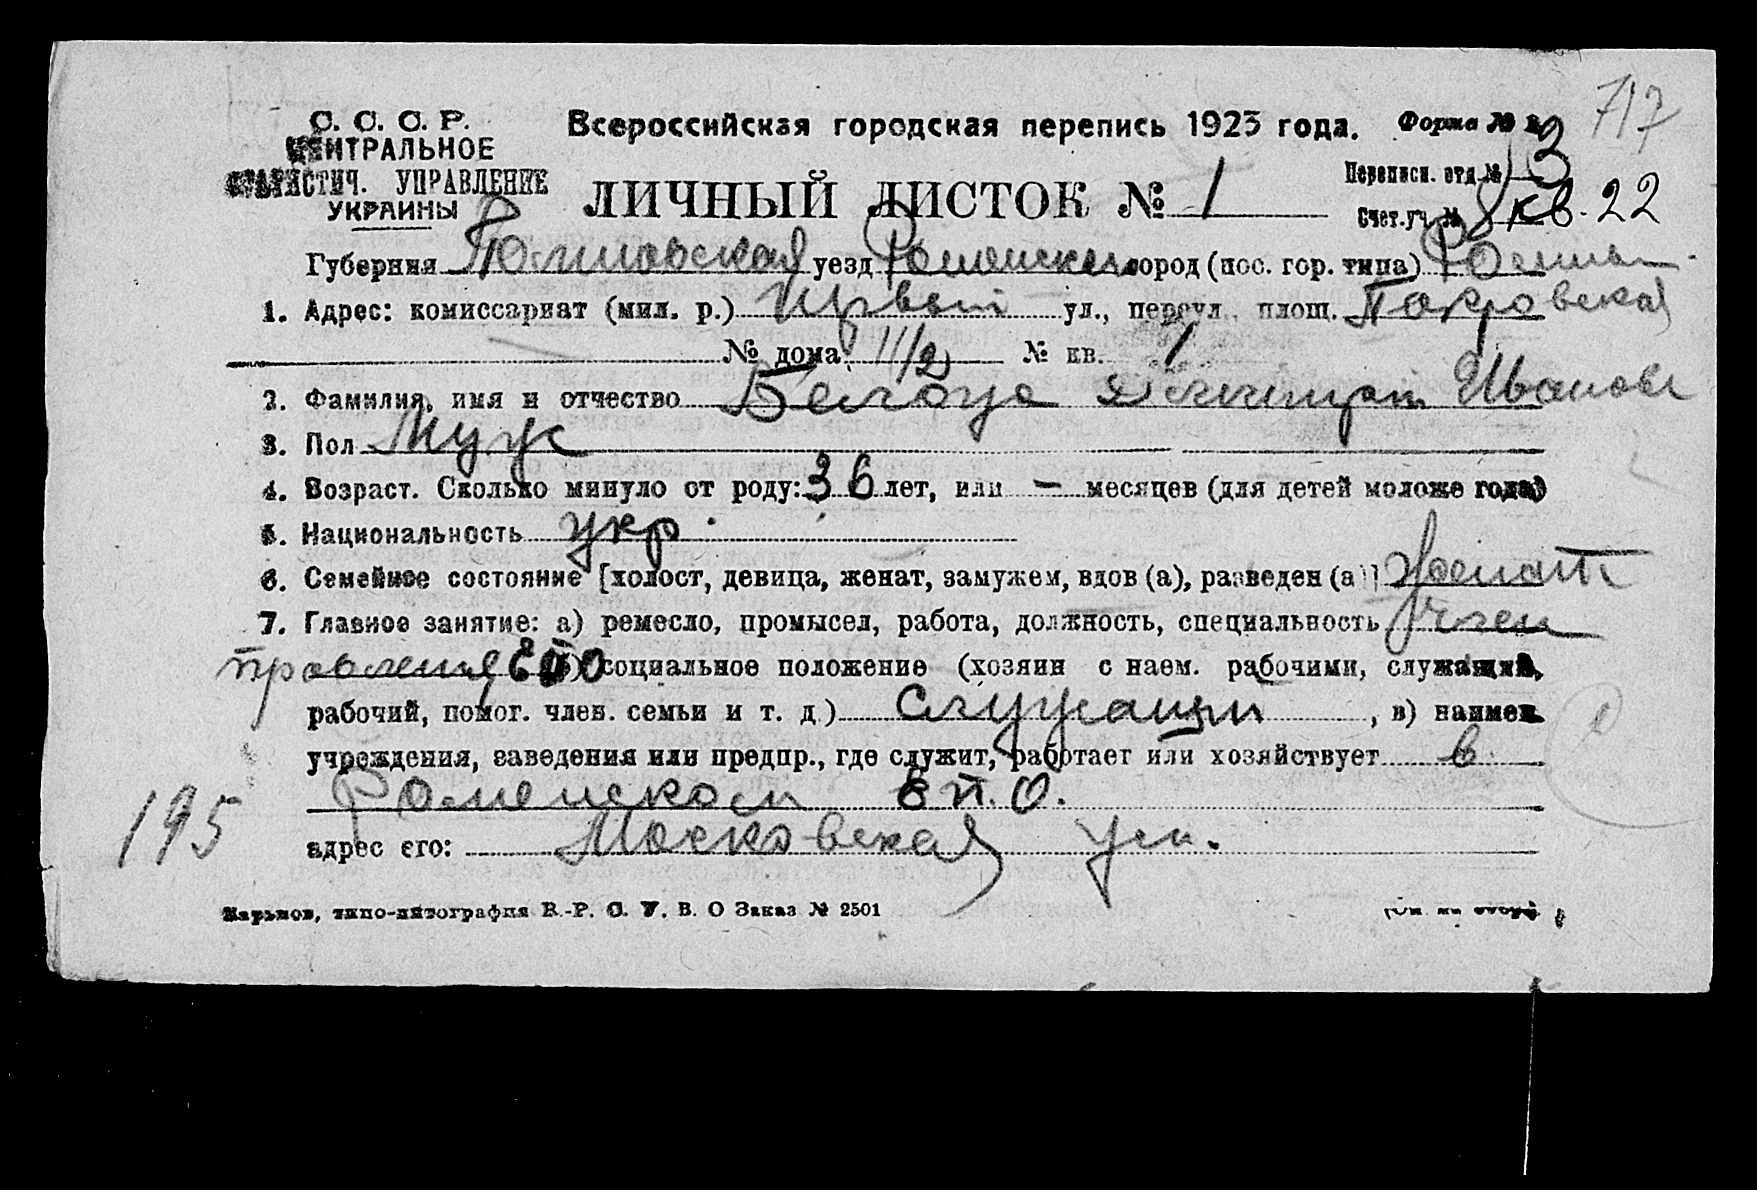 717
С. С. С. Р.
ЦЕНТРАЛЬНОЕ
СТАТИСТИЧ. УПРАВЛЕНИЕ
УКРАИНЫ
Всероссийская городская перепись 1923 года.
Форма № 2
ЛИЧНЫЙ ЛИСТОК № 1
Переписн. отд. № 3
Счет. уч. № 8 кв. 22
Губерния Полтавская уезд Роменский город (пос. гор. типа) Ромны
1. Адрес: комиссариат (мил. р.) Первый ул., переул., площ. Покровская
№ дома 11/2 № кв. 1
2. Фамилия, имя и отчество Дмитрий Иванов
3. Пол Муж
4. Возраст. Сколько минуло от роду: 36 лет, или — месяцев (для детей моложе года)
5. Национальность укр.
6. Семейное состояние [холост, девица, женат, замужем, вдов (а), разведен (а)] Женат
7. Главное занятие: а) ремесло, промысел, работа, должность, специальность Член
правления ЕПО б) социальное положение (хозяин с наем. рабочими, служащий,
рабочий, помог. член. семьи и т. д.) Служащий, в) наимен.
учреждения, заведения или предпр., где служит, работает или хозяйствует в
Роменском Е.П.О.
адрес его: Московская ул.
195
Харьков, типо-литография В.-Р. С. У. В. О Заказ № 2501